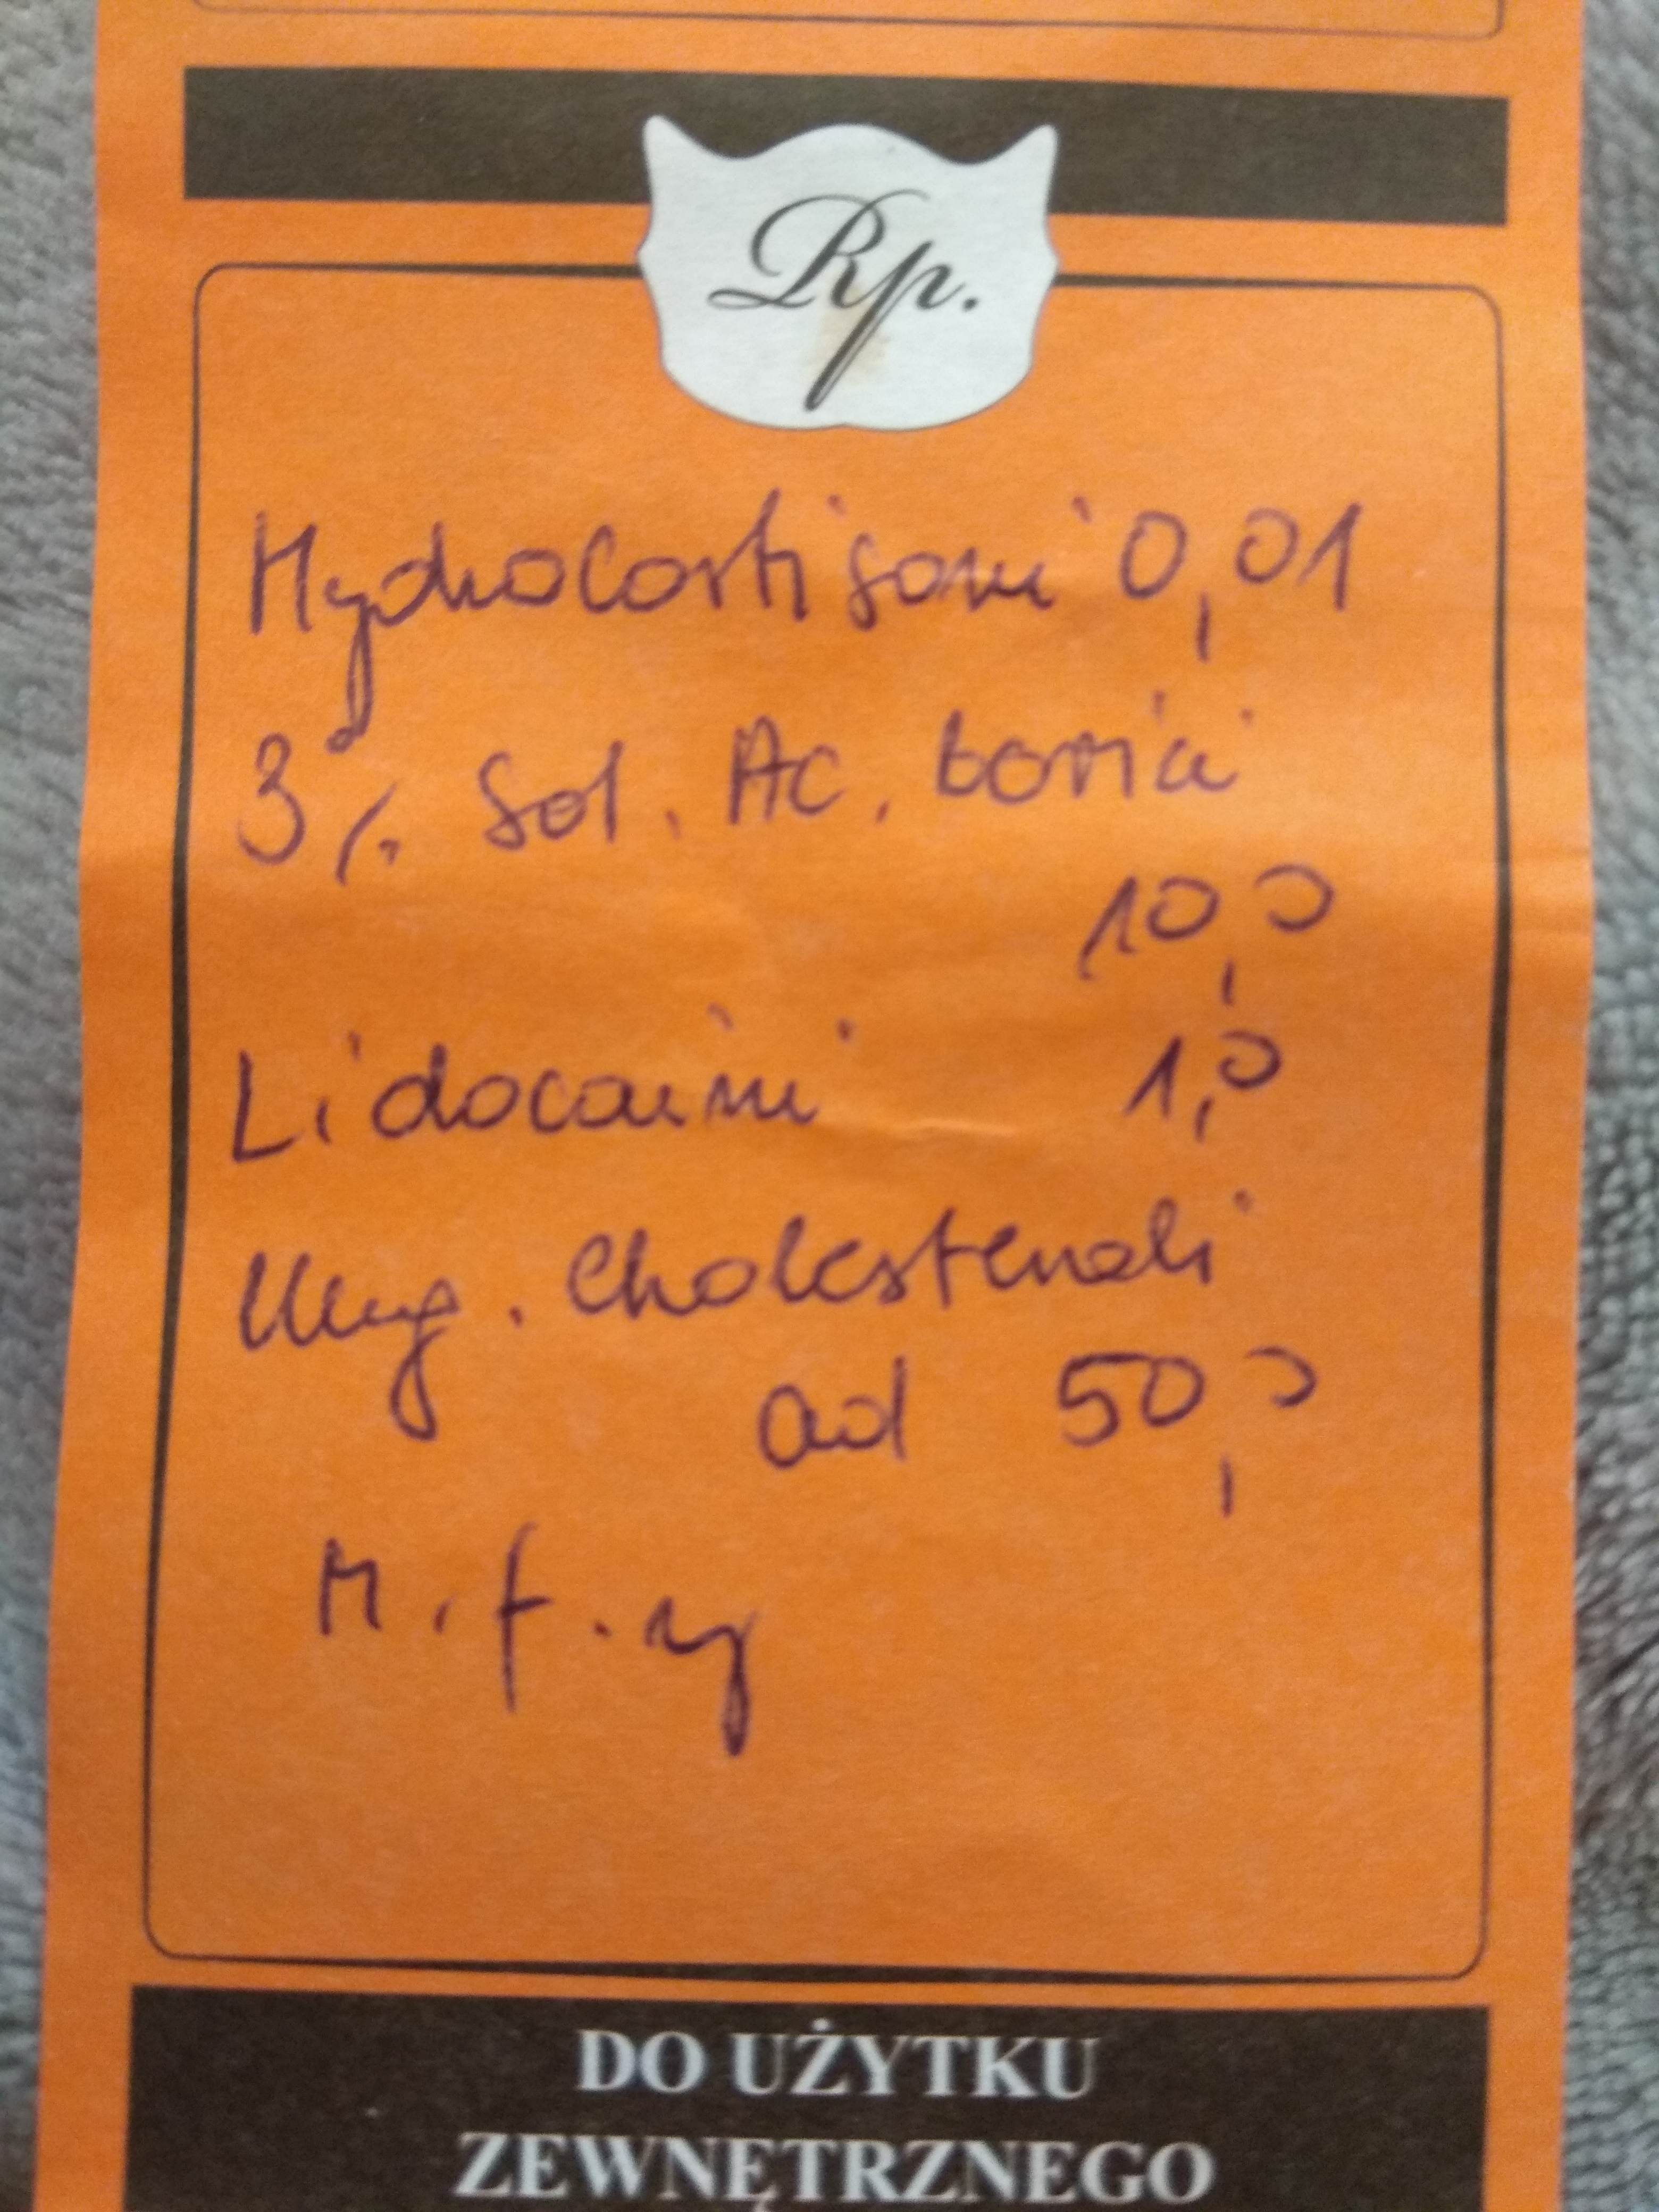 Rp.
Hydrocortisoni 0,01
3% Sol. Ac. borici
10,0
Lidocaini 1,0
Ung. Cholesteroli
ad 50,0
M. f. ung
DO UŻYTKU
ZEWNĘTRZNEGO